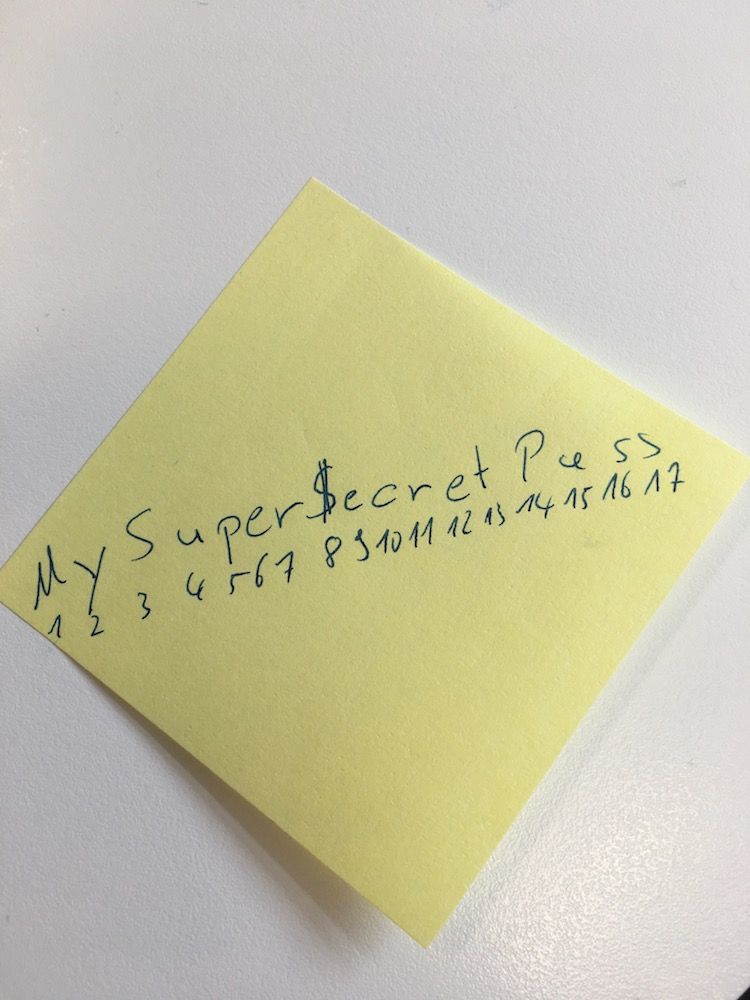 MySuper$ecretPass
1 2 3 4 5 6 7 8 9 10 11 12 13 14 15 16 17